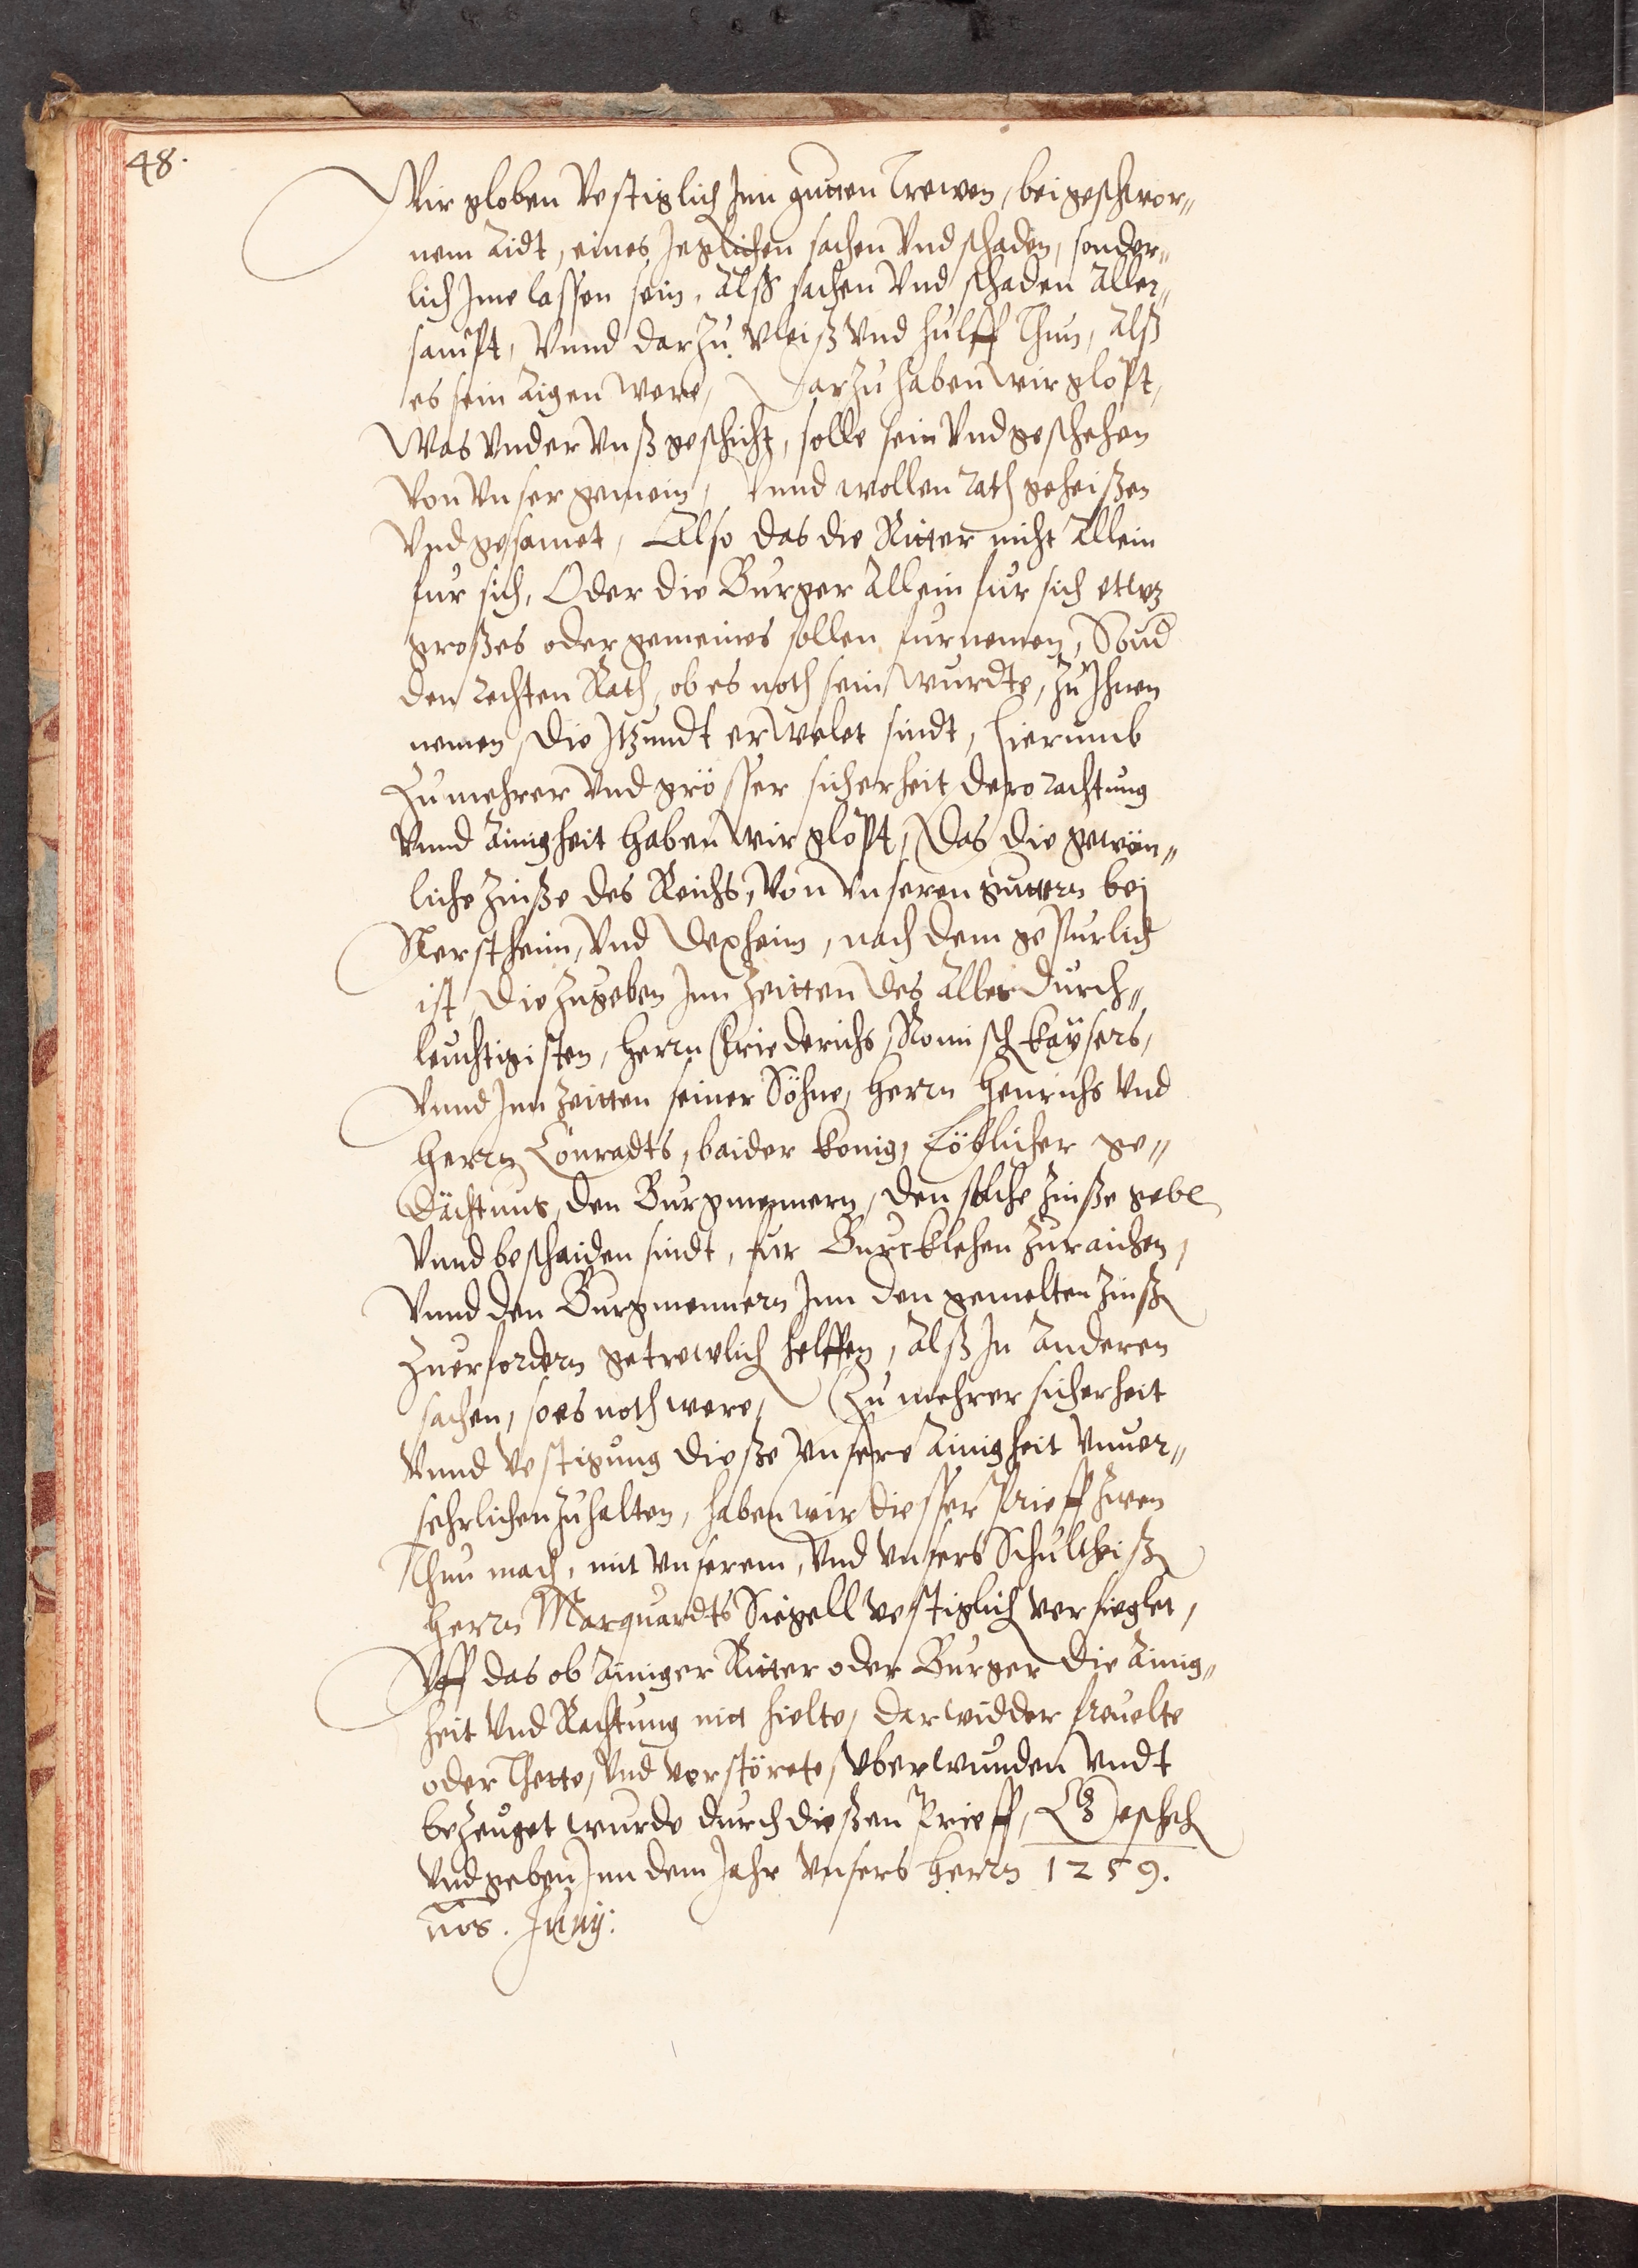 48.
Wir globen Vestiglich Inn gutten Trewen, bei geschwor„
nem Aidt, eines Jeglichen sachen Vnd schaden, sonder„
lich Ime lassen sein, Alß sachen Vnd schaden Aller„
sampt, Vnnd darzu Vleiß Vnd hulff Thun, Alß
es sein Aigen were, Darzu haben wir glopt,
Was Vnder Vnß geschicht, solle sein Vnd geschehen
Von Vnser gemein, Vnnd wollen Rath geheißen
Vnd gesamet, Also das die Ritter nicht Allein
fur sich, Oder die Burger Allein fur sich etwz
großes oder gemeines sollen furnemen, Sond
den Rechten Rath, ob es noth sein wurdte, zu Ihnen
nemen, die Itzundt erwelet sindt, hierumb
Zu mehrer Vnd grösser sicherheit dero Rachtung
Vnnd Ainigheit haben wir glopt, Das die gewön„
liche Zinße des Reichs, Von Vnseren guttern bej
Nerstheim, Vnd Dexheim, nach dem gepurlich
ist, die zugeben Inn Zeitten des Aller durch„
leuchtigisten, Herrn Friederichs Romisch kaÿsers,
Vnnd Inn Zeitten seiner Söhne, Herrn Henrichs Vnd
Herrn Conradts, baider konig, Löblicher ge„
dächtnus, den Burgmennern, den solche Zinße gebe
Vnnd bescheiden sindt, fur Burcklehen zuraichen,
Vnnd den Burgmennern Inn den gemelten Zinß
Zuerfordern getrewlich helffen, Alß In Anderen
sachen, so es noth were, Zu mehrer sicherheit
Vnnd Vestigung dieße Vnsere Ainigheit Vnuer„
sehrlichen zu halten, haben wir diesser Prieff zwen
Thun mach, mit Vnserem, Vnd Vnsers Schultheiß
Herrn Marquardts Siegell Vestiglich versieglet,
Vff das ob Ainiger Ritter oder Burger die Ainig„
heit Vnd Rachtung nit hielte, darwidder freuelte
oder Thette, Vnd verstörete, Vberwunden Vndt
bezeuget wurde durch dießen Prieff, Geschech
Vnd geben Inn dem Jahr Vnsers Herrn 1259.
nos. Junÿ: